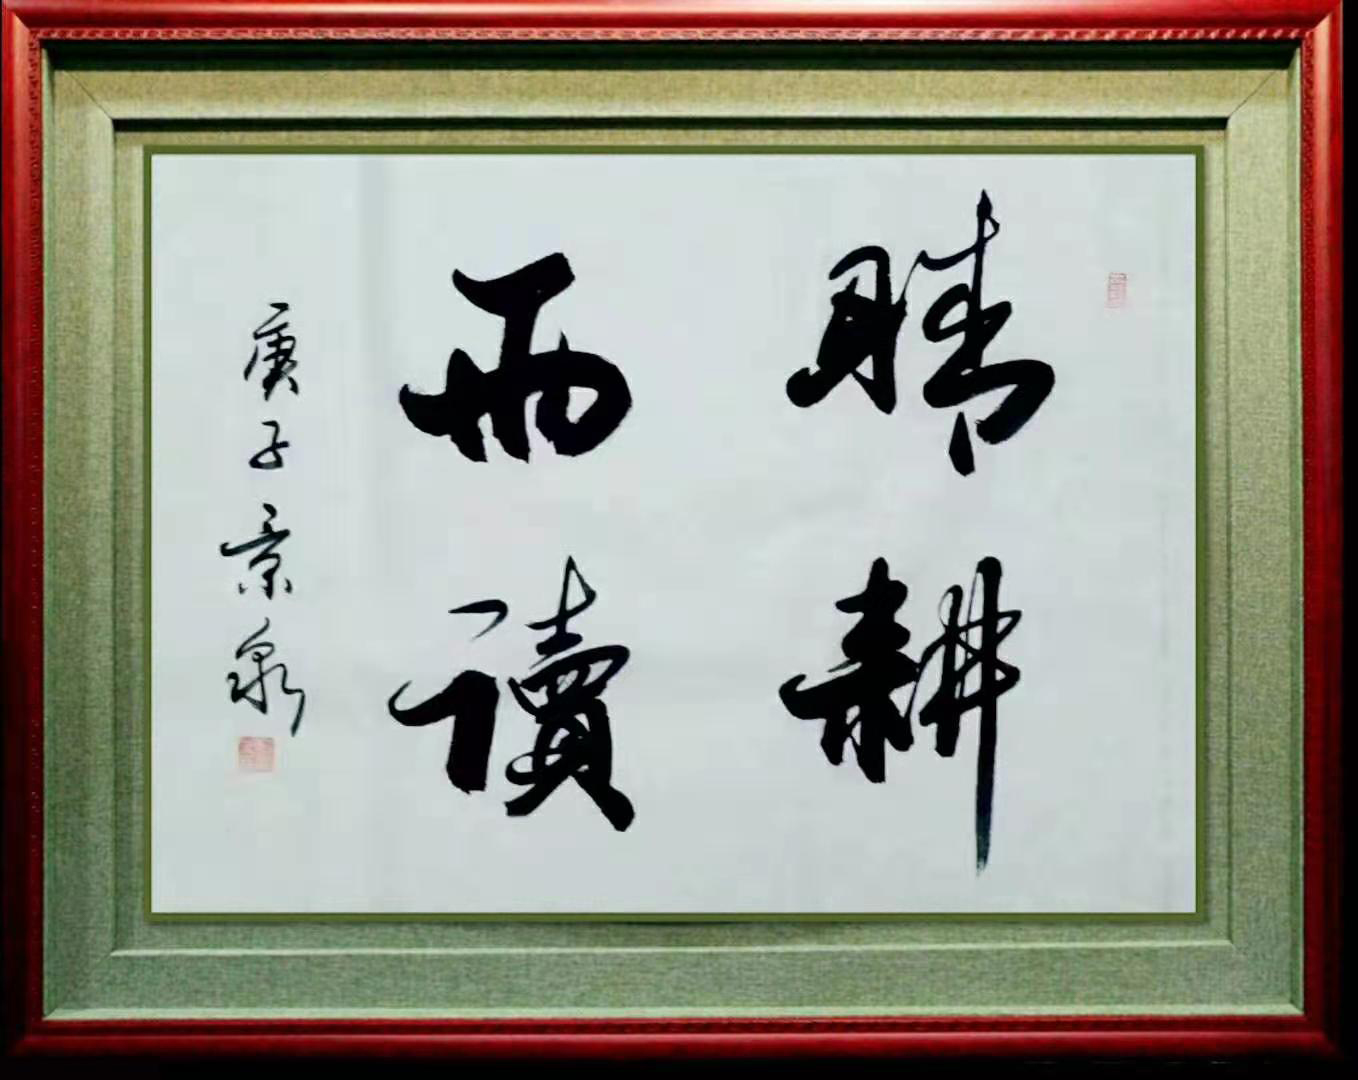 晴耕
雨讀
庚子景泉